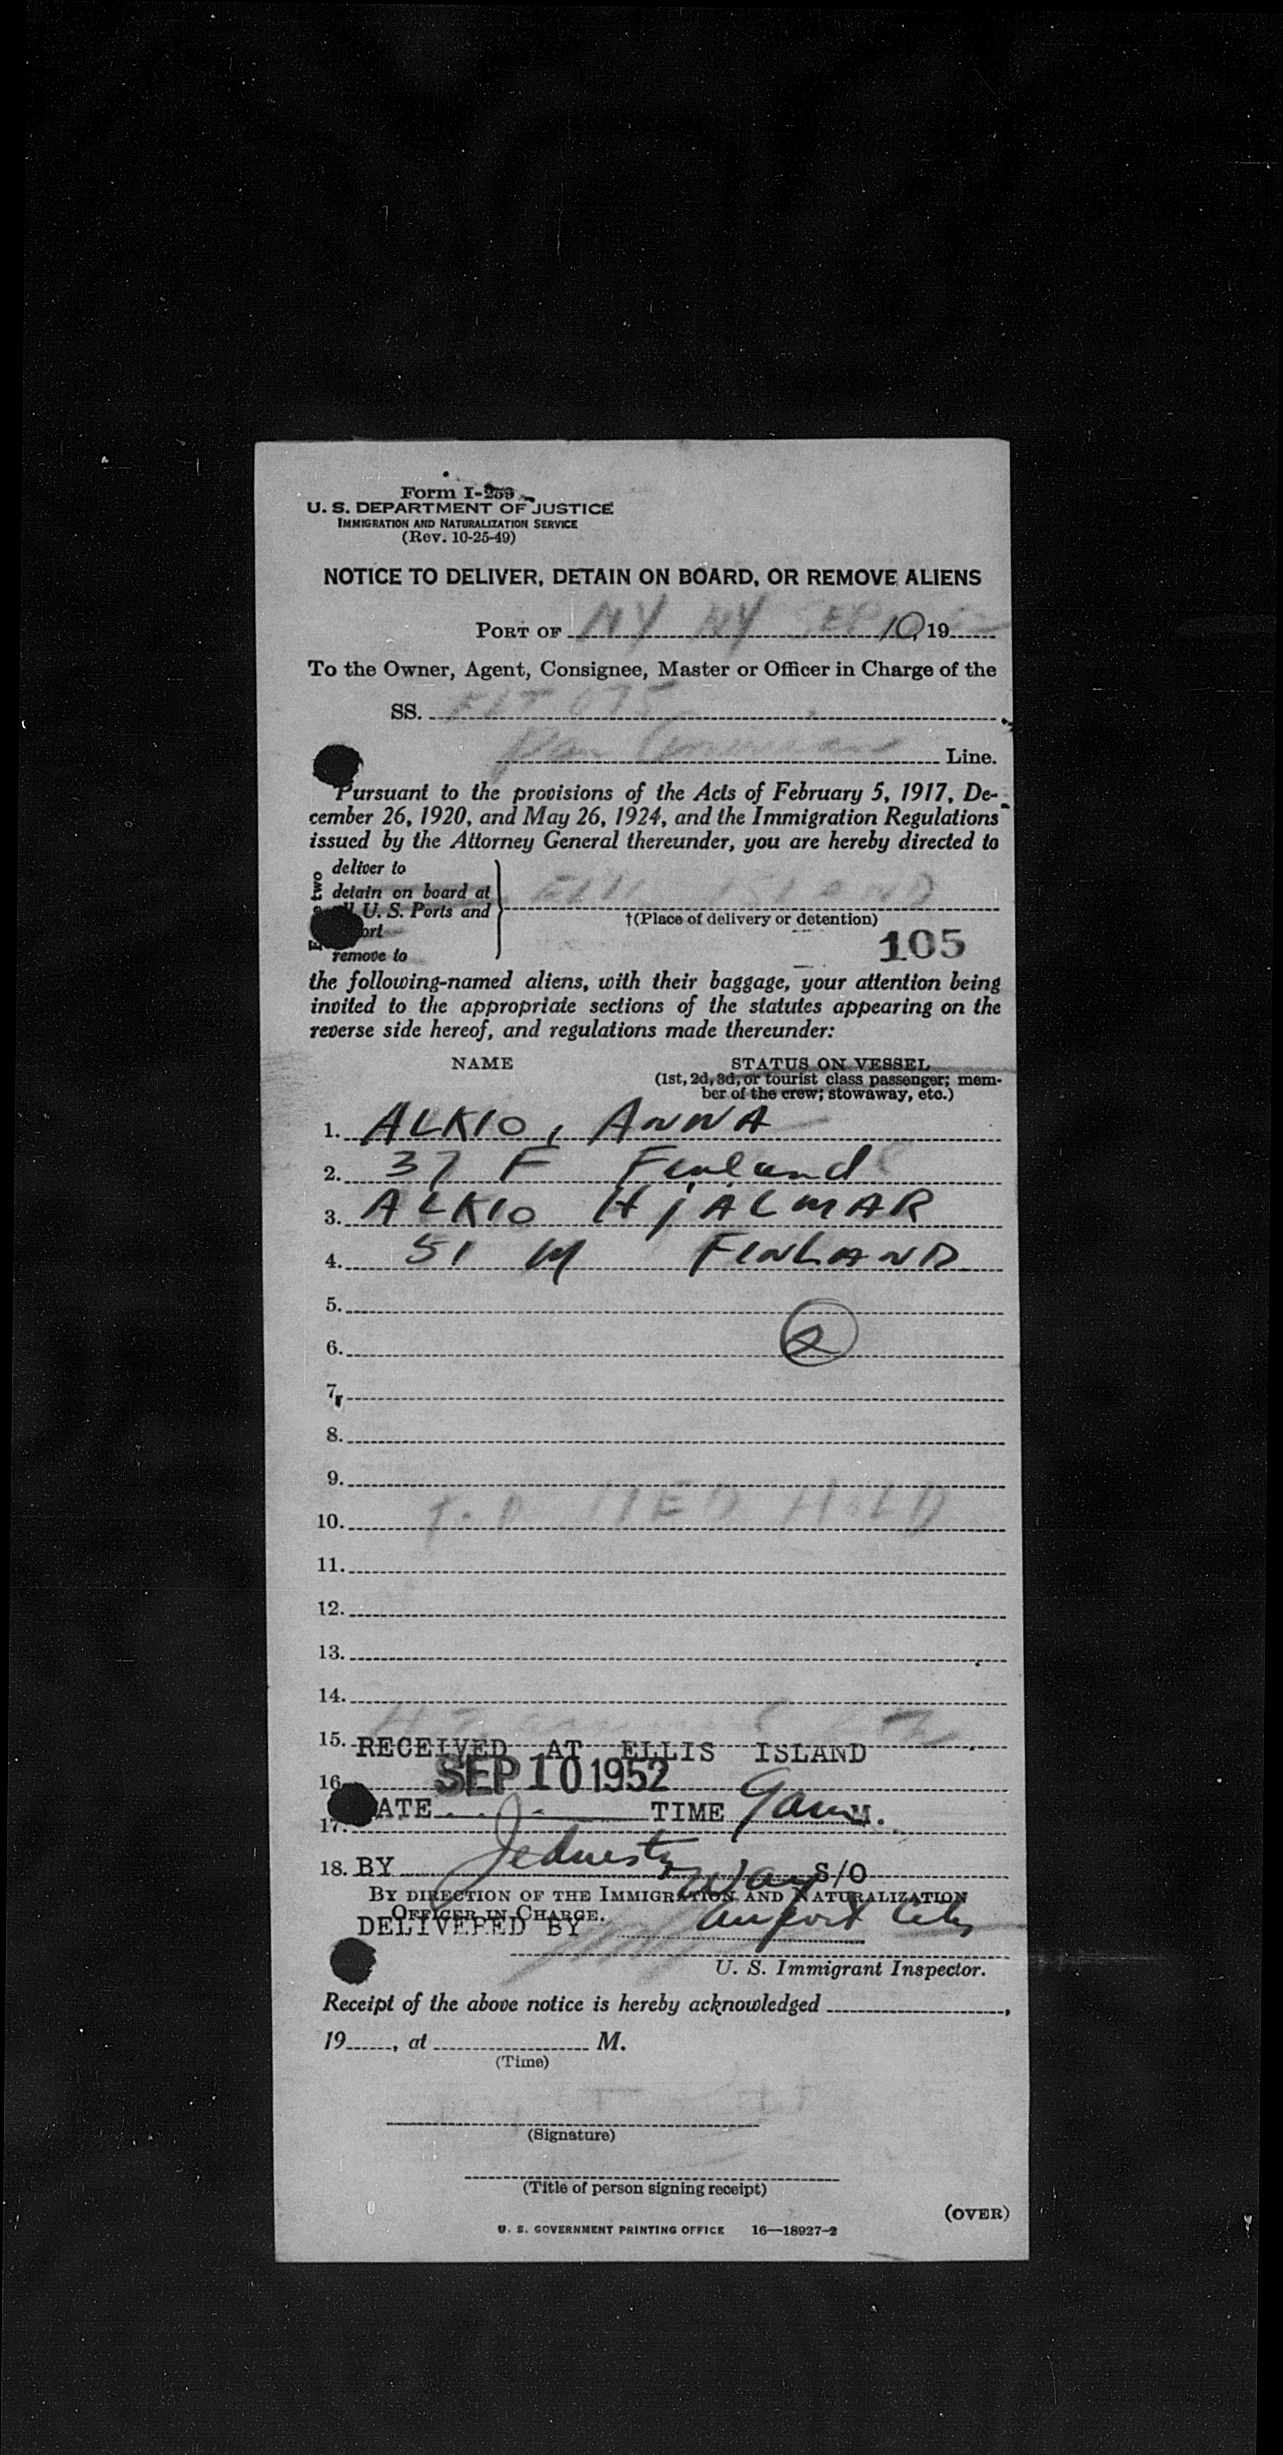 Form I-259
U. S. DEPARTMENT OF JUSTICE
IMMIGRATION AND NATURALIZATION SERVICE
(Rev. 10-25-49)
NOTICE TO DELIVER, DETAIN ON BOARD, OR REMOVE ALIENS
PORT OF NY NY SEP 10, 19
To the Owner, Agent, Consignee, Master or Officer in Charge of the
SS. FLT 075
Pan American Line.
Pursuant to the provisions of the Acts of February 5, 1917, De-
cember 26, 1920, and May 26, 1924, and the Immigration Regulations
issued by the Attorney General thereunder, you are hereby directed to
two
deliver to
detain on board at
U. S. Ports and
remove to
ISLAND
†(Place of delivery or detention)
105
the following-named aliens, with their baggage, your attention being
invited to the appropriate sections of the statutes appearing on the
reverse side hereof, and regulations made thereunder:
NAME STATUS ON VESSEL
(1st, 2d, 3d, or tourist class passenger; mem-
ber of the crew; stowaway, etc.)
1. ALKIO, ANNA
2. 37 F Finland
3. ALKIO HjALMAR
4. 51 M FINLAND
5.
6. 2
7.
8.
9.
10. T.D MED HOLD
11.
12.
13.
14.
15. RECEIVED AT ELLIS ISLAND
16. SEP 10 1952
ATE TIME 9 am M.
17.
18. BY S/O
BY DIRECTION OF THE IMMIGRATION AND NATURALIZATION
OFFICER IN CHARGE.
DELIVERED BY airport
U. S. Immigrant Inspector.
Receipt of the above notice is hereby acknowledged ,
19 , at M.
(Time)
(Signature)
(Title of person signing receipt)
(OVER)
U. S. GOVERNMENT PRINTING OFFICE 16—18927-2